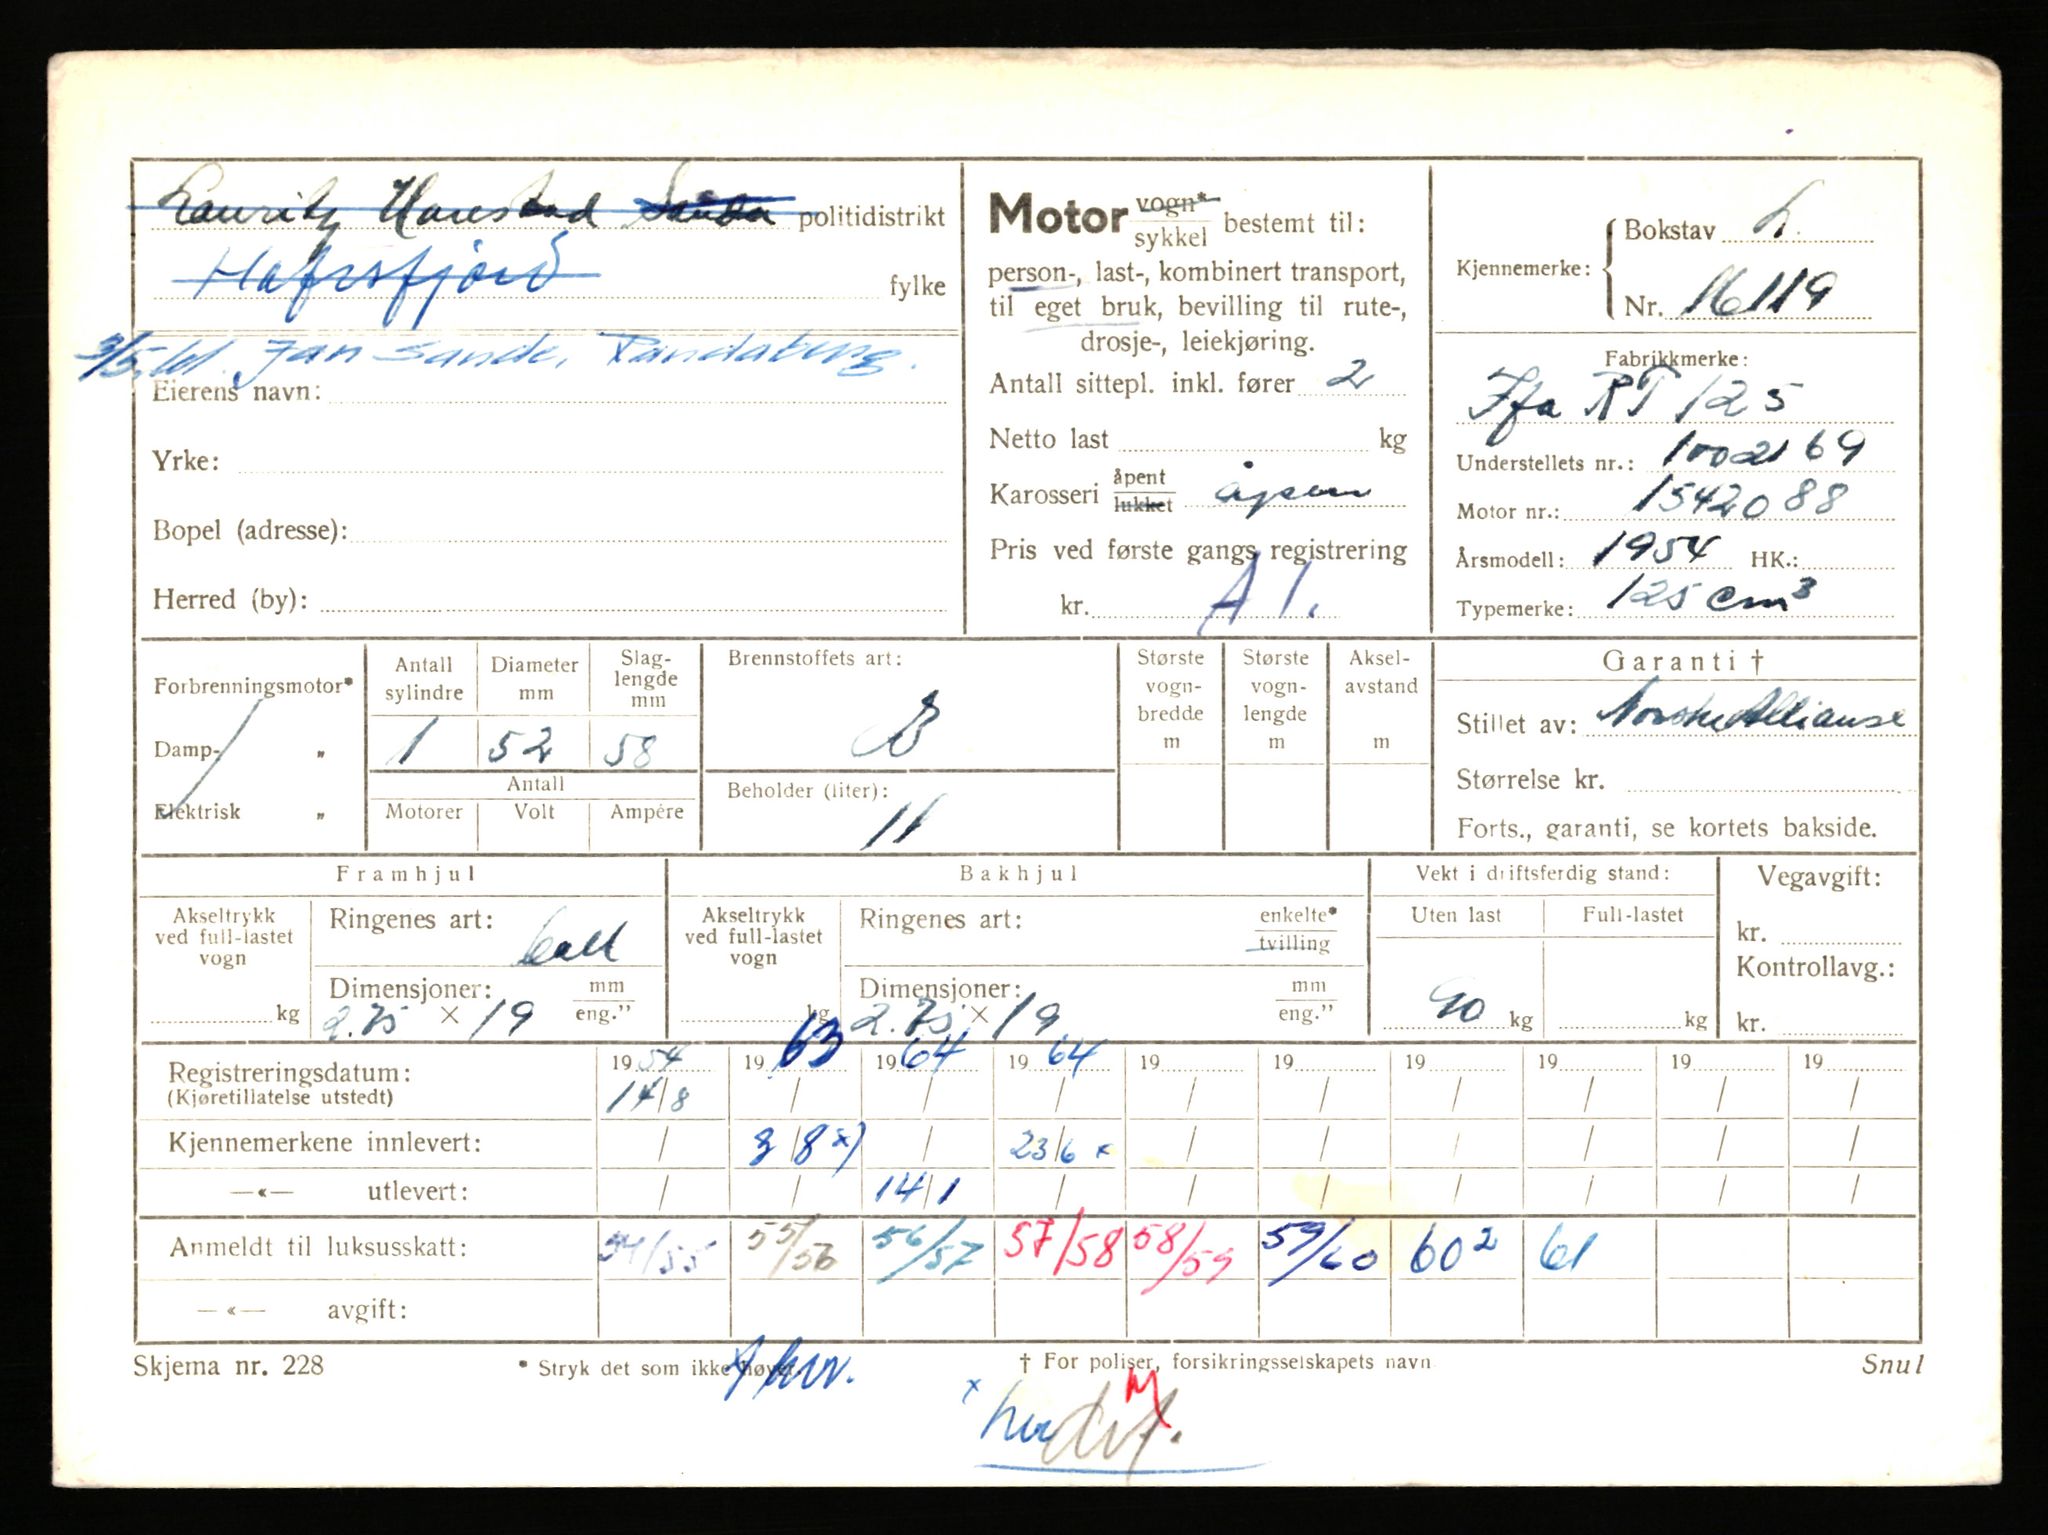 Lauritz Harestad Sanda politidistrikt
Hafrsfjord fylke
3/5.61. Jan Sande, Randaberg.
Eierens navn:
Yrke:
Bopel (adresse):
Herred (by):
Motor vogn* sykkel bestemt til:
person-, last-, kombinert transport,
til eget bruk, bevilling til rute-,
drosje-, leiekjøring.
Antall sittepl. inkl. fører 2
Netto last kg
Karosseri åpent lukket åpen
Pris ved første gangs registrering
kr. A 1.
Kjennemerke: { Bokstav L.
Nr. 16119
Fabrikkmerke:
Ifa RT 125
Understellets nr.: 1002169
Motor nr.: 1542088
Årsmodell: 1954 HK.:
Typemerke: 125 cm3
Forbrenningsmotor*
Damp- „
Elektrisk „
Antall sylindre
1
Diameter mm
52
Slag-lengde mm
58
Antall
Motorer Volt Ampére
Brennstoffets art:
B
Beholder (liter):
11
Største vogn-bredde m
Største vogn-lengde m
Aksel-avstand m
Garanti †
Stillet av: Norske Allianse
Størrelse kr.
Forts., garanti, se kortets bakside.
Framhjul
Akseltrykk ved full-lastet vogn
kg
Ringenes art:
ball
Dimensjoner: mm eng."
2.75 × 19
Bakhjul
Akseltrykk ved full-lastet vogn
kg
Ringenes art: enkelte* tvilling
Dimensjoner: mm eng."
2.75 × 19
Vekt i driftsferdig stand:
Uten last Full-lastet
90 kg kg
Vegavgift:
kr.
Kontrollavg.:
kr.
Registreringsdatum: 19 54 19 63 19 64 19 64 19 19 19 19 19 19
(Kjøretillatelse utstedt) 14/8 / / / / / / / / /
Kjennemerkene innlevert: / 8/8 x) / 23/6 x / / / / / /
—«— utlevert: / / 14/1 / / / / / / /
Anmeldt til luksusskatt: 54/55 55/56 56/57 57/58 58/59 59/60 60 2 61
—«— avgift:
Skjema nr. 228 * Stryk det som ikke høver. † For poliser, forsikringsselskapets navn Snul
x
M